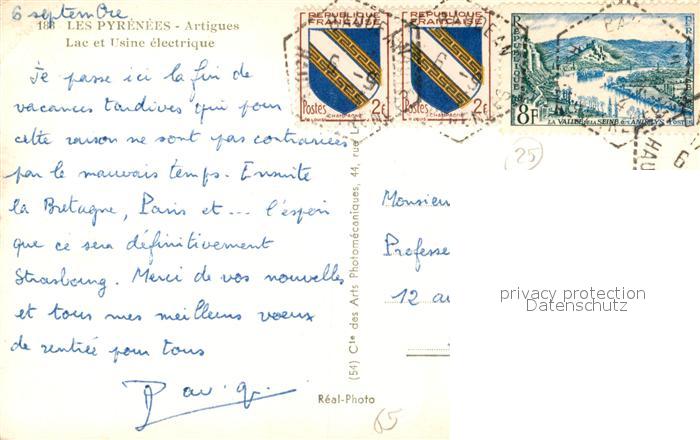 6 septembre
188 LES PYRÉNÉES - Artigues
Lac et Usine électrique
Je passe ici la fin de
vacances tardives qui pour
cette raison ne sont pas contrariées
par le mauvais temps. Ensuite
la Bretagne, Paris et ... l'espoir
que ce sera définitivement
Strasbourg. Merci de vos nouvelles
et tous mes meilleurs voeux
de rentrée pour tous
(54) Cie des Arts Photomécaniques, 44, rue L
Réal-Photo
65
REPUBLIQUE FRANÇAISE
Postes 2F
CHAMPAGNE
REPUBLIQUE FRANÇAISE
Postes 2F
CHAMPAGNE
REPUBLIQUE FRANÇAISE
8F
LA VALLÉE DE LA SEINE AUX ANDELYS POSTES
25
Monsieu
Professe
12 a
privacy protection
Datenschutz